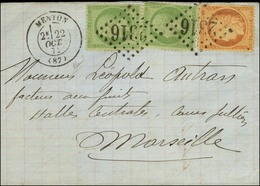 MENTON
2E/22
OCT.
(87)
2316
2316
Monsieur Léopold Autran
facteur aux fruits
Halles Centrales, Cours Jullien
Marseille